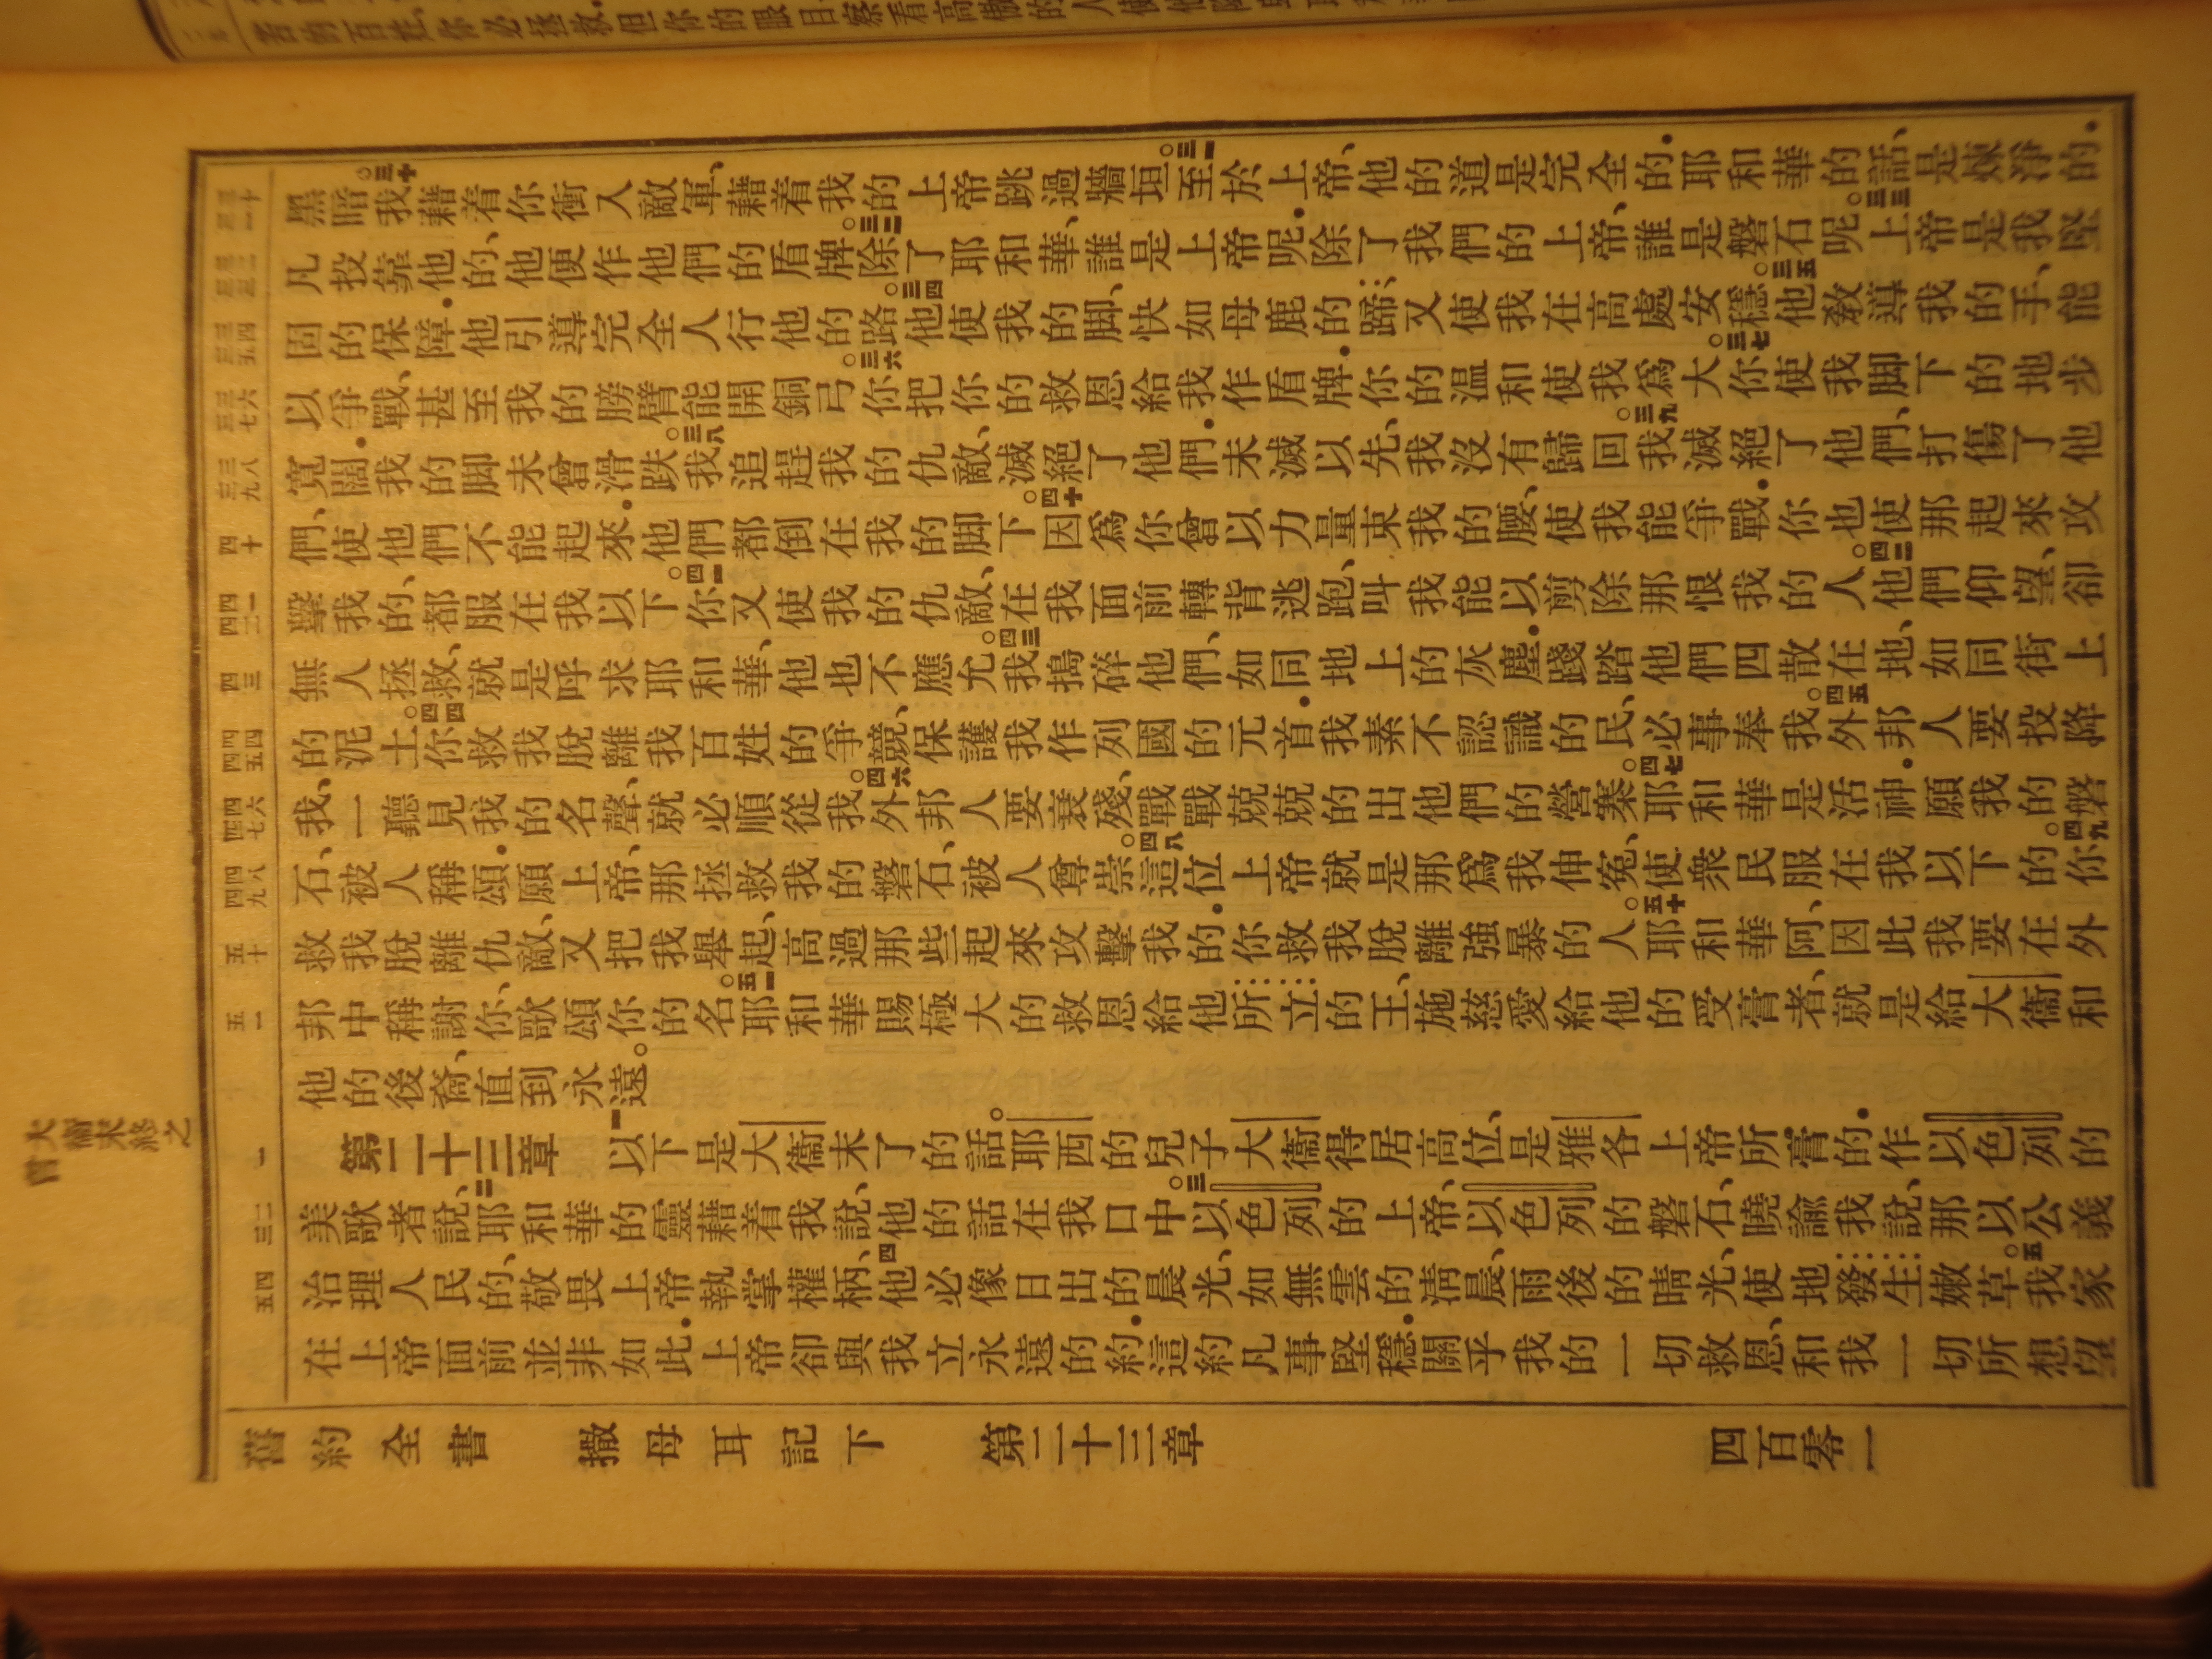 黑暗。三十我藉着你衝入敵軍、藉着我的上帝跳過牆垣。三一至於上帝、他的道是完全的．耶和華的話、是煉淨的．
凡投靠他的、他便作他們的盾牌。三二除了耶和華、誰是上帝呢．除了我們的上帝、誰是磐石呢。三三上帝是我堅
固的保障．他引導完全人行他的路。三四他使我的脚、快如母鹿的蹄、又使我在高處安穩。三五他教導我的手、能
以爭戰、甚至我的膀臂能開銅弓。三六你把你的救恩給我作盾牌．你的温和使我爲大。三七你使我脚下的地步
寬闊．我的脚未曾滑跌。三八我追趕我的仇敵、滅絕了他們．未滅以先、我沒有歸回。三九我滅絕了他們、打傷了他
們、使他們不能起來．他們都倒在我的脚下。四十因爲你曾以力量束我的腰、使我能爭戰．你也使那起來攻
擊我的、都服在我以下。四一你又使我的仇敵、在我面前轉背逃跑、叫我能以剪除那恨我的人。四二他們仰望、卻
無人拯救、就是呼求耶和華、他也不應允。四三我搗碎他們、如同地上的灰塵．踐踏他們四散在地、如同街上
的泥土。四四你救我脫離我百姓的爭競、保護我作列國的元首．我素不認識的民、必事奉我。四五外邦人要投降
我、一聽見我的名聲、就必順從我。四六外邦人要衰殘、戰戰兢兢的出他們的營寨。四七耶和華是活神．願我的磐
石、被人稱頌．願上帝、那拯救我的磐石、被人尊崇。四八這位上帝就是那爲我伸冤、使衆民服在我以下的。四九你
救我脫離仇敵、又把我舉起、高過那些起來攻擊我的．你救我脫離強暴的人。五十耶和華阿、因此我要在外
邦中稱謝你、歌頌你的名。五一耶和華賜極大的救恩給他所立的王、施慈愛給他的受膏者、就是給大衞和
他的後裔、直到永遠。
第二十三章 一以下是大衞末了的話。耶西的兒子大衞得居高位、是雅各上帝所膏的．作以色列的
美歌者說、二耶和華的靈藉着我說、他的話在我口中。三以色列的上帝、以色列的磐石、曉諭我說、那以公義
治理人民的、敬畏上帝執掌權柄、四他必像日出的晨光、如無雲的清晨、雨後的晴光、使地發生嫩草。五我家
在上帝面前並非如此．上帝卻與我立永遠的約．這約凡事堅穩．關乎我的一切救恩、和我一切所想望
舊約全書 撒母耳記下 第二十三章 四百零一